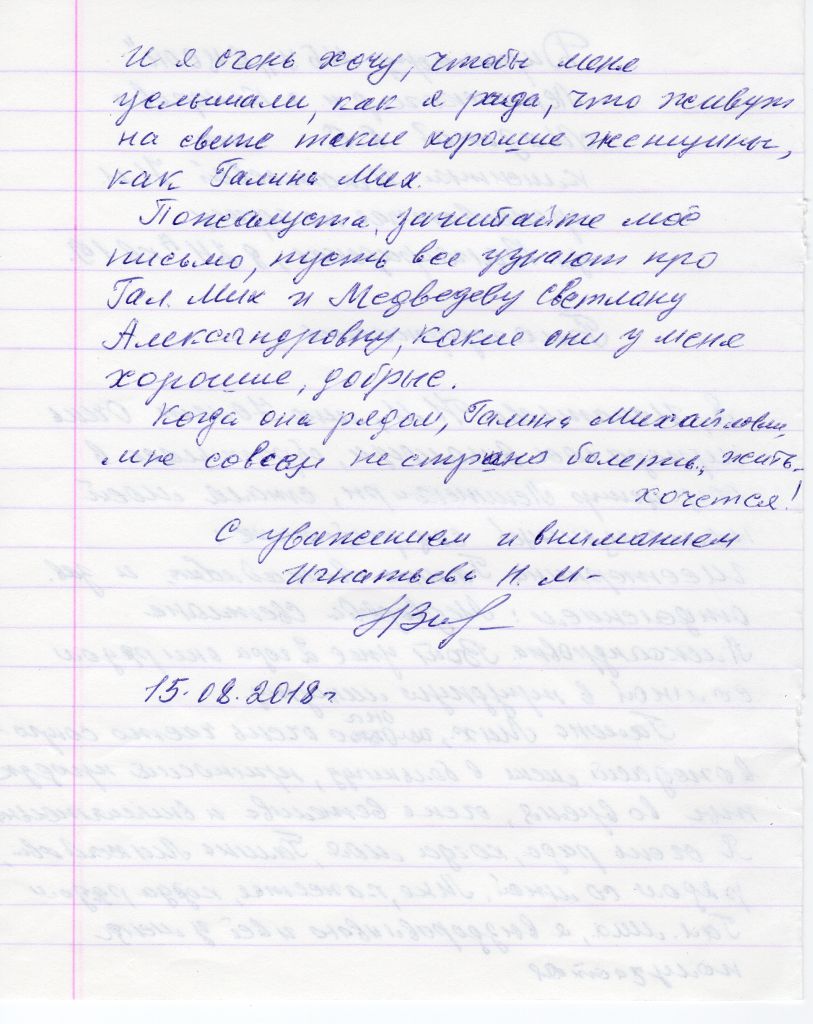 И я очень хочу, чтобы меня
услышали, как я рада, что живут
на свете такие хорошие женщины,
как Галина Мих.
Пожалуста, зачитайте моё
письмо, пусть все узнают про
Гал. Мих и Медведеву Светлану
Александровну, какие они у меня
хорошие, добрые.
Когда она рядом, Галина Михайловна,
мне совсем не страшно болеть, жить
хочется!
С уважением и вниманием
Игнатьева Н. М-
15.08.2018г